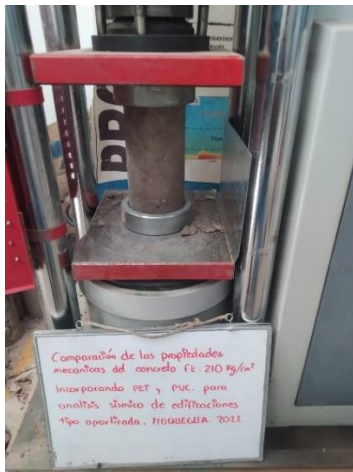 Comparación de las propiedades
mecanicas del concreto f'c: 210 Kg/cm²
Incorporando PET y PVC. para
analisis sismico de edificaciones
tipo aporticada, MOQUEGUA. 2022